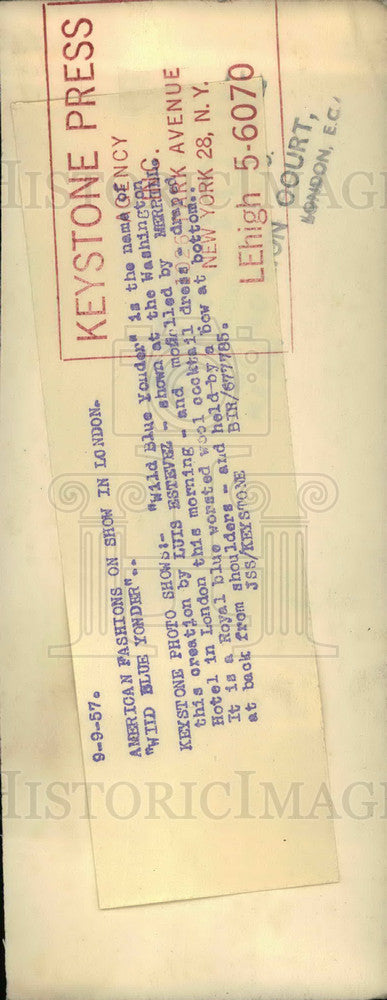 KEYSTONE PRESS
AGENCY
PARK AVENUE
NEW YORK 28, N.Y.
LEhigh 5-6070
COURT,
LONDON, E.C.
9-9-57.
AMERICAN FASHIONS ON SHOW IN LONDON.
"WIID BLUE YONDER"..
KEYSTONE PHOTO SHOWS:- "Wild Blue Youder" is the name of
this creation by LUIS ESTEVEZ - shown at the Washington
Hotel in London this morning - and modelled by MERRUNL.
It is a Royal blue worsted wool cocktail dress - draped
at back from shoulders - and held by a bow at bottom..
JSS/KEYSTONE BIR/677785.
HISTORIC IMAGES
HISTORIC IMAGES